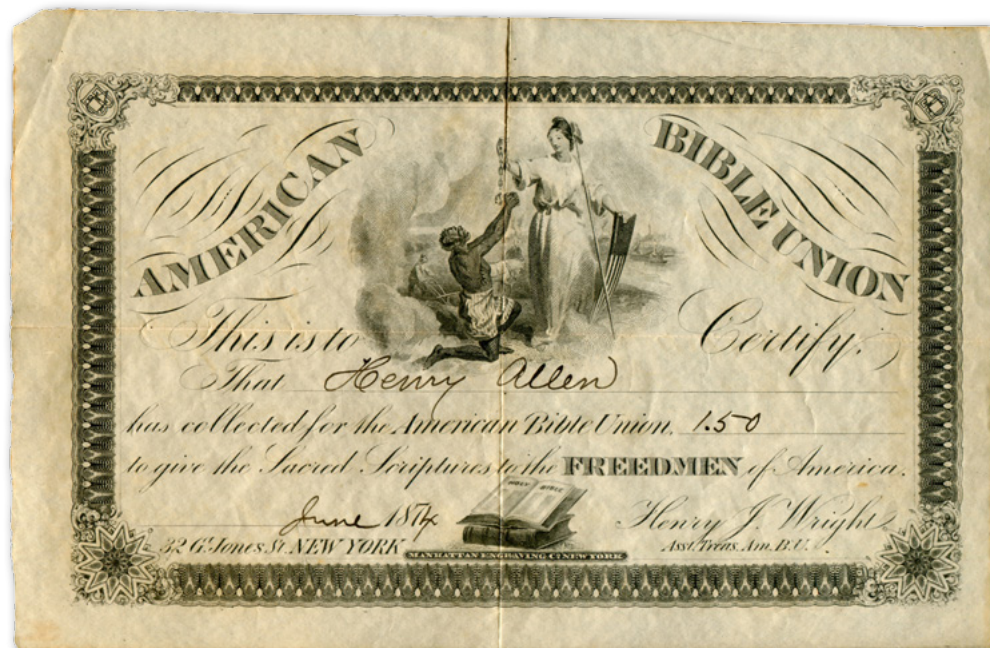 AMERICAN BIBLE UNION
This is to Certify.
That Henry Allen
has collected for the American Bible Union, 1.50
to give the Sacred Scriptures to the FREEDMEN of America.
HOLY BIBLE
June 1874 Henry J. Wright
32 Gt. Jones St. NEW YORK Asst. Treas. Am. B.U.
MANHATTAN ENGRAVING Co. NEW YORK